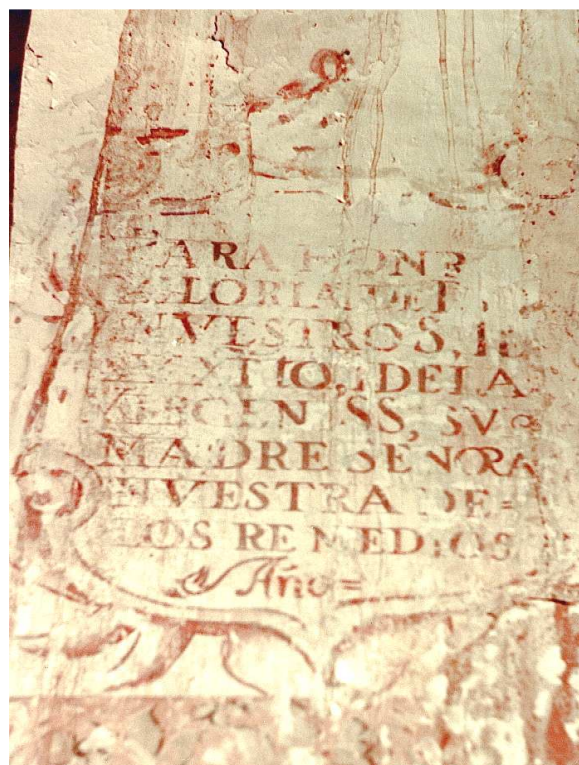 PARA HONR
GLORIA DE D
NVESTROS, IE
XTTO, I DE LA
VIRGEN SS, SV
MADRE SEÑORA
NVESTRA DE=
LOS REMEDIOS
Año=